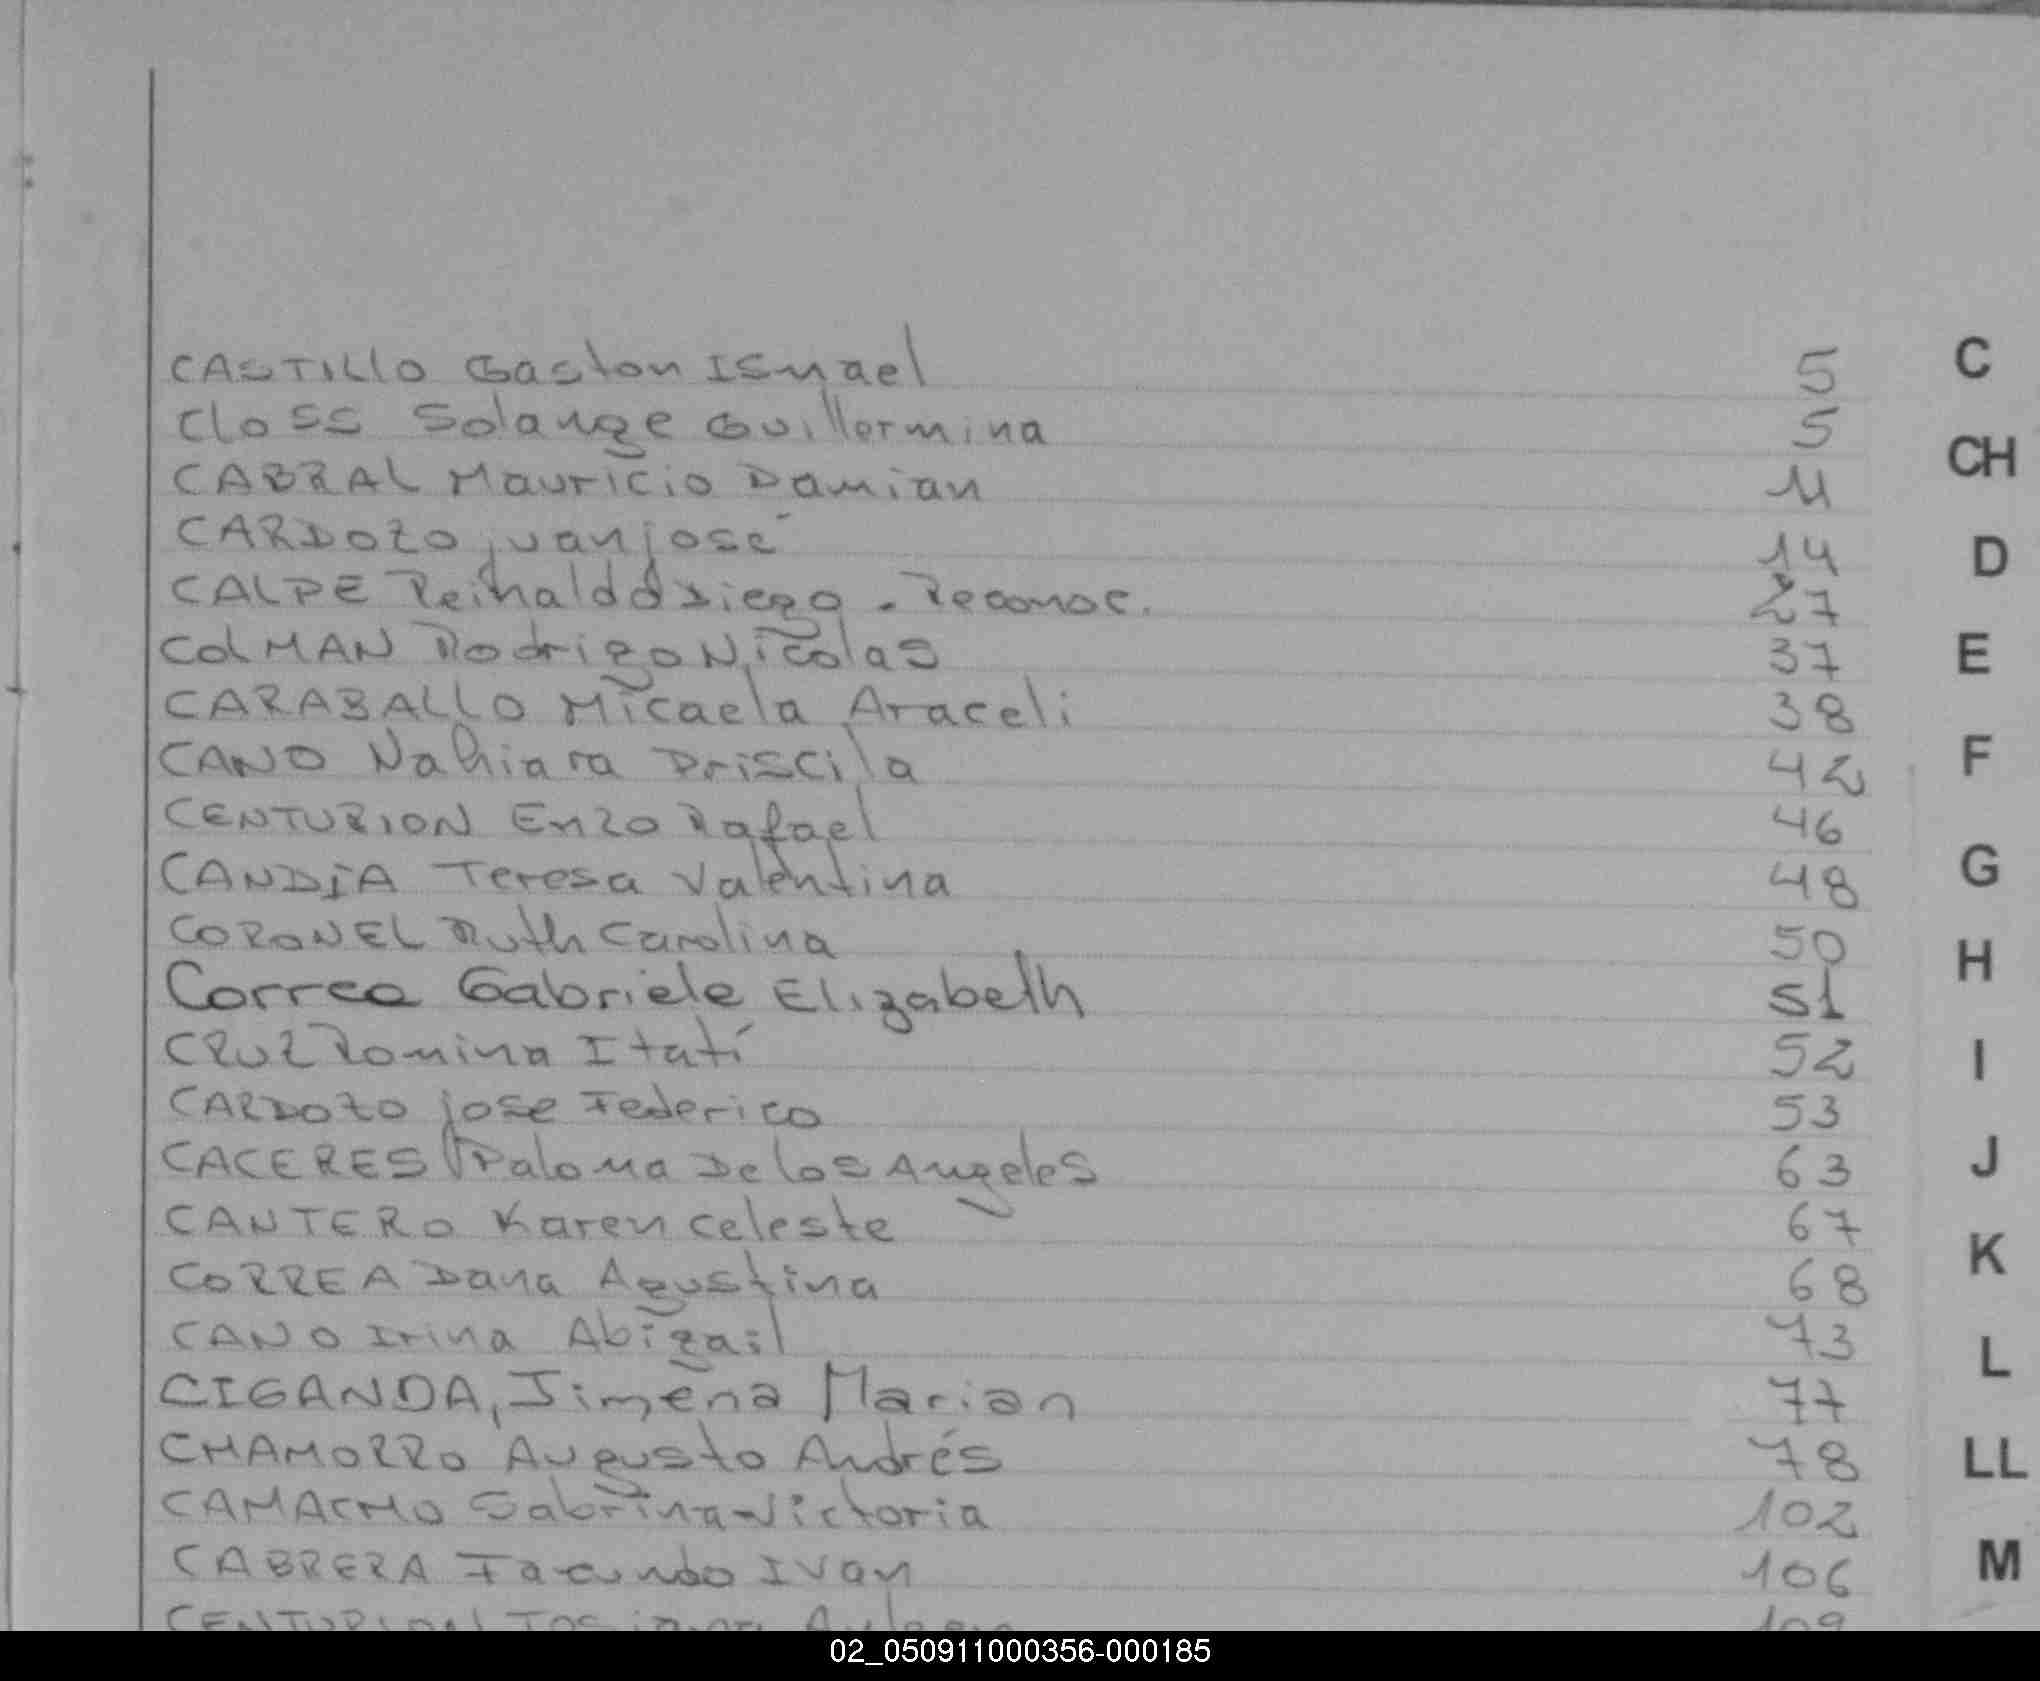 CASTILLO Gaston Ismael 5 C
Closs Solange Guillermina 5
CABRAL Mauricio Damian 11 CH
CARDOZO Juan José 14 D
CALPE Reinaldo Diego - Reconoc. 27
COLMAN Rodrigo Nicolas 37 E
CARABALLO Micaela Araceli 38
CANO Nahiara Priscila 42 F
CENTURION Enzo Rafael 46
CANDIA Teresa Valentina 48 G
CORONEL Ruth Carolina 50
Correa Gabriele Elizabeth 51 H
CRUZ Romina Itatí 52 I
CARDOZO Jose Federico 53
CACERES Paloma De los Angeles 63 J
CANTERO Karen Celeste 67
CORREA Dana Agustina 68 K
CANO Irina Abigail 73 L
CIGANDA, Jimena Marian 77
CHAMORRO Augusto Andrés 78 LL
CAMACHO Sabrina Victoria 102
CABRERA Facundo Ivan 106 M
CENTURION 109
02_050911000356-000185